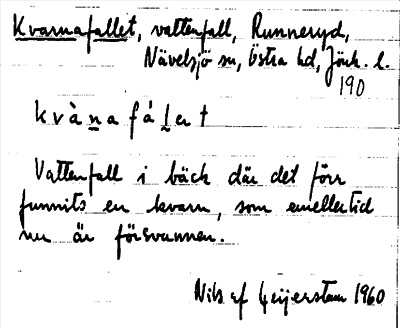 Kvarnafallet, vattenfall, Runneryd,
Nävelsjö sn, Östra hd, Jönk. l.
190
kvànafáḷet
Vattenfall i bäck där det förr
funnits en kvarn, som emellertid
nu är försvunnen.
Nils af Geijerstam 1960